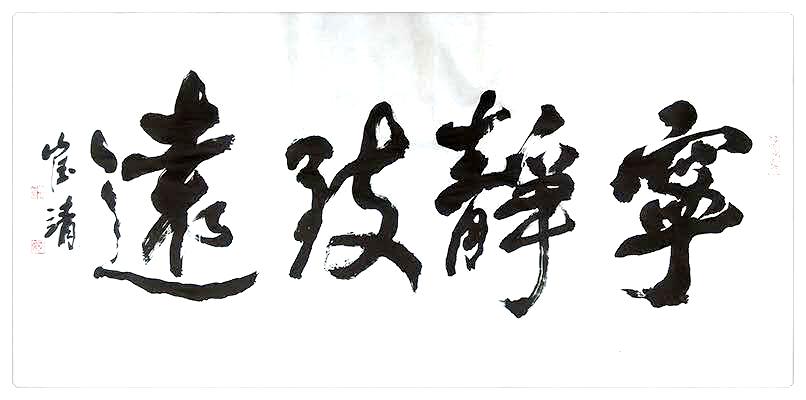 寧靜致遠
崔清